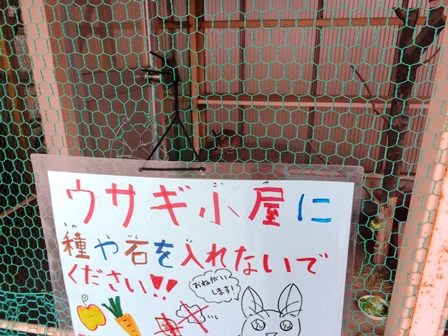 ウサギ小屋に
種や石を入れないで
ください!!
おねがい
します!